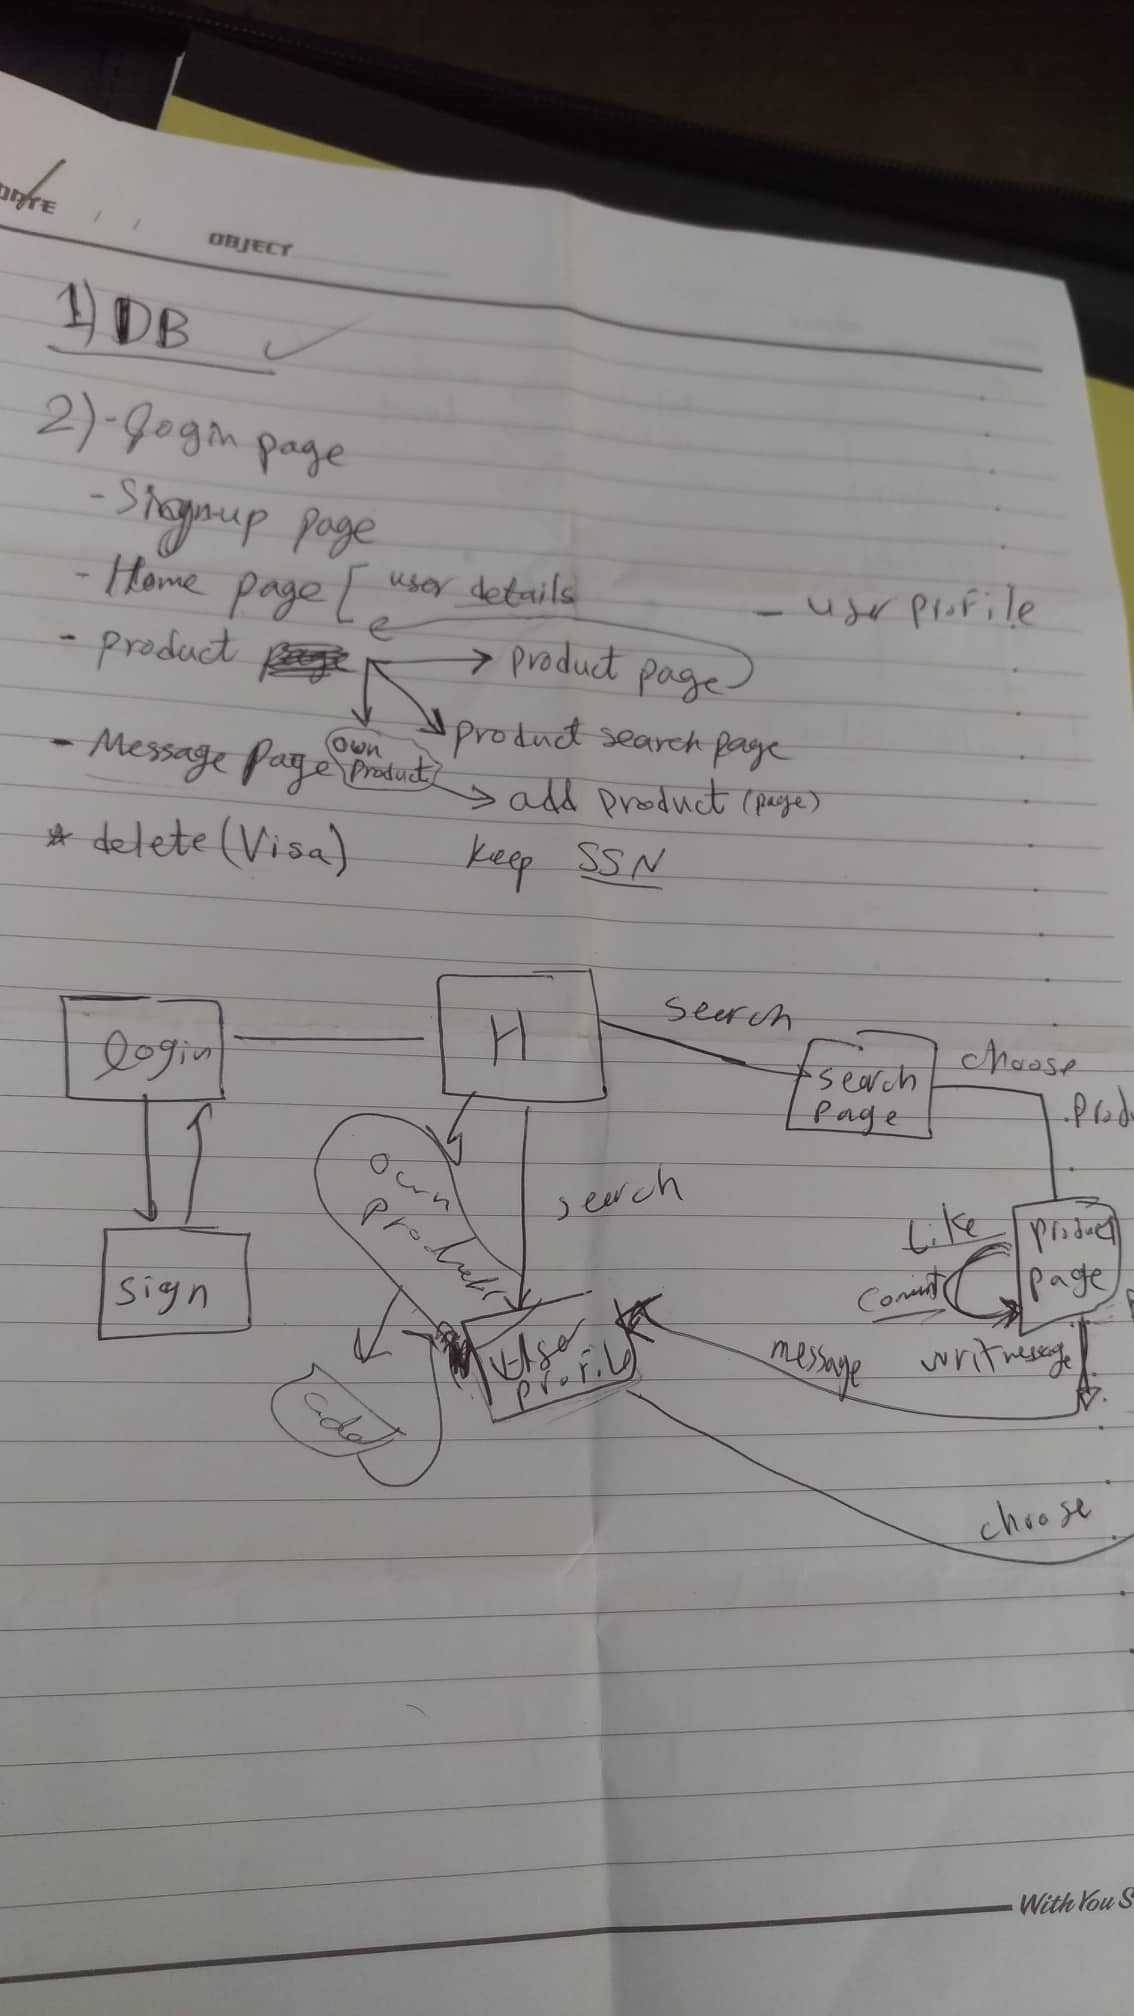 DATE / /
OBJECT
1) DB
2) - login page
- Signup page
- Home page [ user details
- user profile
- product → product page
product search page
- Message Page
own
product
→ add product (page)
* delete (Visa) keep SSN
login
H
search
search
page
choose
prod
own
products
search
Like
Comint
product
page
sign
User
profile
message
writ message
add
choose
With You S